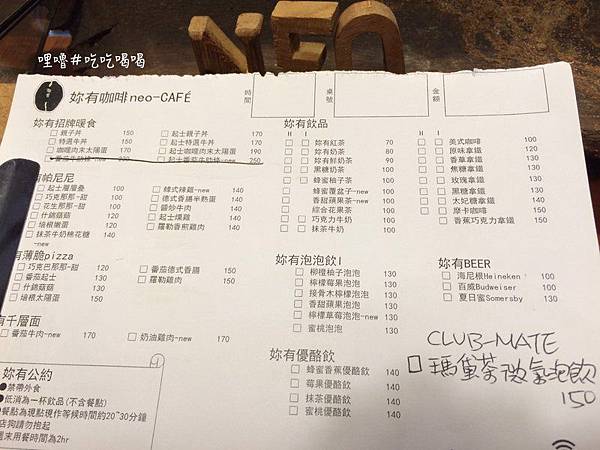 哩嚕#吃吃喝喝
NEO
妳有咖啡neo-CAFÉ
時間
桌號
金額
妳有招牌暖食
□ 親子丼 150
□ 特選牛丼 170
□ 咖哩肉末太陽蛋 170
□ 番茄牛肋條-new 220
□ 起士親子丼 170
□ 起士特選牛丼 190
□ 起士咖哩肉末太陽蛋 190
□ 起士番茄牛肋條-new 250
有帕尼尼
□ 起士層層疊 100
□ 巧克那那-甜 100
□ 花生那那-甜 100
□ 什錦菇菇 120
□ 培根嫩蛋 120
□ 抹茶牛奶棉花糖 140
-new
□ 韓式辣雞-new 140
□ 德式香腸半熟蛋 140
□ 韓炒牛肉 140
□ 起士燻雞 140
□ 羅勒香煎雞肉 140
有薄脆pizza
□ 巧克巴那那-甜 120
□ 番茄起士 130
□ 什錦菇菇 130
□ 培根太陽蛋 150
□ 番茄德式香腸 150
□ 羅勒雞肉 150
有千層面
□ 番茄牛肉-new 170
□ 奶油雞肉-new 170
妳有公約
●禁帶外食
●低消為一杯飲品(不含餐點)
餐點為現點現作等候時間約20~30分鐘
店狗請勿抱起
週末用餐時間為2hr
妳有飲品
H I
□ □ 妳有紅茶 70
□ □ 妳有奶茶 80
□ □ 妳有鮮奶茶 90
□ □ 黑糖奶茶 100
□ □ 蜂蜜柚子茶 100
蜂蜜覆盆子-new 100
香甜蘋果茶-new 100
□ 綜合花果茶 100
□ □ 巧克力牛奶 100
□ □ 抹茶牛奶 100
H I
□ □ 美式咖啡 100
□ □ 原味拿鐵 120
□ □ 香草拿鐵 130
□ □ 焦糖拿鐵 130
□ □ 玫瑰拿鐵 130
□ □ 黑糖拿鐵 130
□ □ 太妃糖拿鐵 140
□ □ 摩卡咖啡 150
□ 香蕉巧克力拿鐵 150
妳有泡泡飲I
□ 柳橙柚子泡泡 130
□ 檸檬莓果泡泡 130
□ 接骨木檸檬泡泡 130
□ 香甜蘋果泡泡 130
□ 檸檬草莓泡泡-new 130
□ 蜜桃泡泡 130
妳有BEER
□ 海尼根Heineken 100
□ 百威Budweiser 100
□ 夏日蜜Somersby 130
妳有優酪飲
□ 蜂蜜香蕉優酪飲 140
□ 莓果優酪飲 140
□ 抹茶優酪飲 140
□ 蜜桃優酪飲 140
CLUB-MATE
□ 瑪黛茶微氣泡飲
150